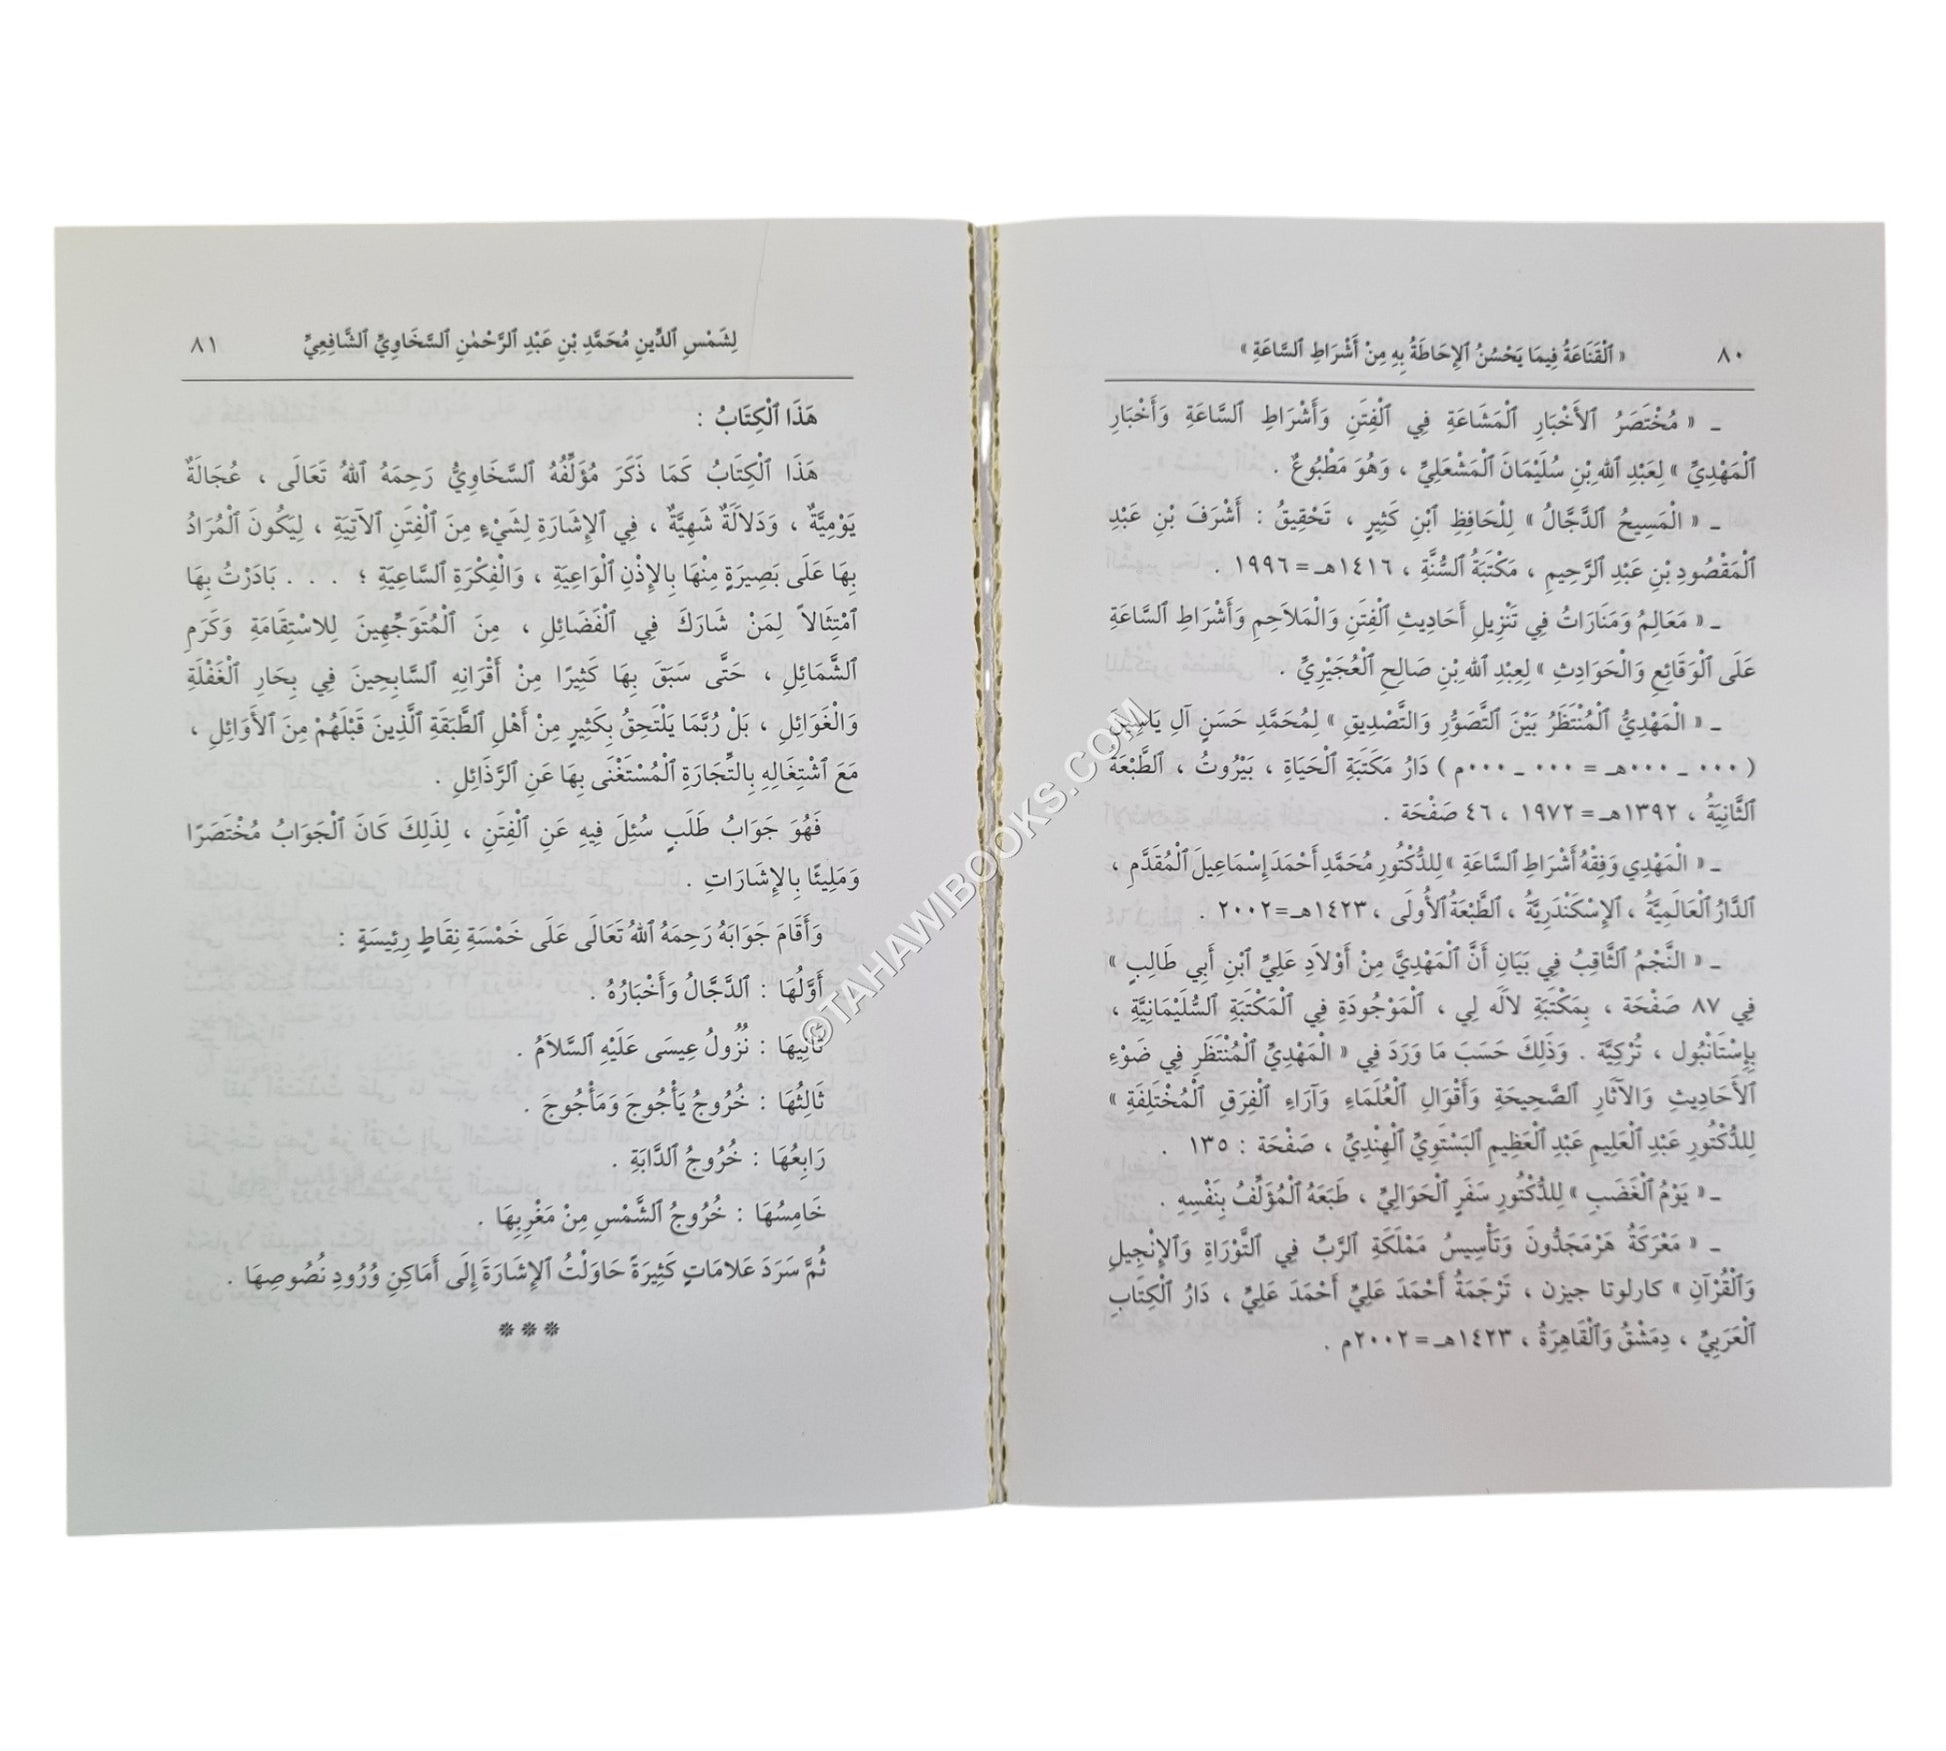 ٨٠ « ٱلْقَنَاعَةُ فِيمَا يَحْسُنُ ٱلإِحَاطَةُ بِهِ مِنْ أَشْرَاطِ ٱلسَّاعَةِ »
ـ « مُخْتَصَرُ ٱلأَخْبَارِ ٱلْمَشَاعَةِ فِي ٱلْفِتَنِ وَأَشْرَاطِ ٱلسَّاعَةِ وَأَخْبَارِ
ٱلْمَهْدِيِّ » لِعَبْدِ اللهِ بْنِ سُلَيْمَانَ ٱلْمَشْعَلِيِّ ، وَهُوَ مَطْبُوعٌ .
ـ « الْمَسِيحُ ٱلدَّجَّالُ » لِلْحَافِظِ ٱبْنِ كَثِيرٍ ، تَحْقِيقُ : أَشْرَفَ بْنِ عَبْدِ
ٱلْمَقْصُودِ بْنِ عَبْدِ ٱلرَّحِيمِ ، مَكْتَبَةُ ٱلسُّنَّةِ ، ١٤١٦هـ = ١٩٩٦ .
ـ « مَعَالِمُ وَمَنَارَاتُ فِي تَنْزِيلِ أَحَادِيثِ ٱلْفِتَنِ وَالْمَلاَحِمِ وَأَشْرَاطِ ٱلسَّاعَةِ
عَلَى ٱلْوَقَائِعِ وَالْحَوَادِثِ » لِعِبْدِ اللهِ بْنِ صَالِحِ ٱلْعُجَيْرِيِّ .
ـ « الْمَهْدِيُّ ٱلْمُنْتَظَرُ بَيْنَ ٱلتَّصَوُّرِ وَالتَّصْدِيقِ » لِمُحَمَّدِ حَسَنٍ آلِ يَاسِينَ
( ٠٠٠ ـ ٠٠٠هـ = ٠٠٠ ـ ٠٠٠م ) دَارُ مَكْتَبَةِ ٱلْحَيَاةِ ، بَيْرُوتُ ، ٱلطَّبْعَةُ
ٱلثَّانِيَةُ ، ١٣٩٢هـ = ١٩٧٢ ، ٤٦ صَفْحَة .
ـ « الْمَهْدِي وَفِقْهُ أَشْرَاطِ ٱلسَّاعَةِ » لِلدُّكْتُورِ مُحَمَّدِ أَحْمَدَ إِسْمَاعِيلَ ٱلْمُقَدَّمِ ،
ٱلدَّارُ ٱلْعَالَمِيَّةُ ، ٱلإِسْكَنْدَرِيَّةُ ، ٱلطَّبْعَةُ ٱلأُولَى ، ١٤٢٣هـ = ٢٠٠٢ .
ـ « النَّجْمُ ٱلثَّاقِبُ فِي بَيَانِ أَنَّ ٱلْمَهْدِيَّ مِنْ أَوْلاَدِ عَلِيِّ ٱبْنِ أَبِي طَالِبٍ »
فِي ٨٧ صَفْحَة ، بِمَكْتَبَةِ لاَلَه لِي ، ٱلْمَوْجُودَةِ فِي ٱلْمَكْتَبَةِ ٱلسُّلَيْمَانِيَّةِ ،
بِإِسْتَانْبُول ، تُرْكِيَّة . وَذَلِكَ حَسَبَ مَا وَرَدَ فِي « الْمَهْدِيِّ ٱلْمُنْتَظَرِ فِي ضَوْءِ
ٱلأَحَادِيثِ وَالآثَارِ ٱلصَّحِيحَةِ وَأَقْوَالِ ٱلْعُلَمَاءِ وَآرَاءِ ٱلْفِرَقِ ٱلْمُخْتَلِفَةِ »
لِلدُّكْتُورِ عَبْدِ ٱلْعَلِيمِ عَبْدِ ٱلْعَظِيمِ ٱلبَسْتَوِيِّ ٱلْهِنْدِيِّ ، صَفْحَة : ١٣٥ .
ـ « يَوْمُ ٱلْغَضَبِ » لِلدُّكْتُورِ سَفَرٍ ٱلْحَوَالِيِّ ، طَبَعَهُ ٱلْمُؤَلِّفُ بِنَفْسِهِ .
ـ « مَعْرَكَةُ هَرْمَجَدُّونَ وَتَأْسِيسُ مَمْلَكَةِ ٱلرَّبِّ فِي ٱلتَّوْرَاةِ وَٱلإِنْجِيلِ
وَٱلْقُرْآنِ » كارلوتا جيزن ، تَرْجَمَةُ أَحْمَدَ عَلِيِّ أَحْمَدَ عَلِيٍّ ، دَارُ ٱلْكِتَابِ
ٱلْعَرَبِيِّ ، دِمَشْقُ وَٱلْقَاهِرَةُ ، ١٤٢٣هـ = ٢٠٠٢م .
لِشَمْسِ ٱلدِّينِ مُحَمَّدِ بْنِ عَبْدِ ٱلرَّحْمٰنِ ٱلسَّخَاوِيِّ ٱلشَّافِعِيِّ ٨١
هَذَا ٱلْكِتَابُ :
هَذَا ٱلْكِتَابُ كَمَا ذَكَرَ مُؤَلِّفُهُ ٱلسَّخَاوِيُّ رَحِمَهُ اللهُ تَعَالَى ، عُجَالَةٌ
يَوْمِيَّةٌ ، وَدَلاَلَةٌ شَهِيَّةٌ ، فِي ٱلإِشَارَةِ لِشَيْءٍ مِنَ ٱلْفِتَنِ ٱلآتِيَةِ ، لِيَكُونَ ٱلْمُرَادُ
بِهَا عَلَى بَصِيرَةٍ مِنْهَا بِالإِذْنِ ٱلْوَاعِيَةِ ، وَالْفِكْرَةِ ٱلسَّاعِيَةِ ؛ . . . بَادَرْتُ بِهَا
ٱمْتِثَالاً لِمَنْ شَارَكَ فِي ٱلْفَضَائِلِ ، مِنَ ٱلْمُتَوَجِّهِينَ لِلاسْتِقَامَةِ وَكَرَمِ
ٱلشَّمَائِلِ ، حَتَّى سَبَقَ بِهَا كَثِيرًا مِنْ أَقْرَانِهِ ٱلسَّابِحِينَ فِي بِحَارِ ٱلْغَفْلَةِ
وَالْغَوَائِلِ ، بَلْ رُبَّمَا يَلْتَحِقُ بِكَثِيرٍ مِنْ أَهْلِ ٱلطَّبَقَةِ ٱلَّذِينَ قَبْلَهُمْ مِنَ ٱلأَوَائِلِ ،
مَعَ ٱشْتِغَالِهِ بِالتِّجَارَةِ ٱلْمُسْتَغْنَى بِهَا عَنِ ٱلرَّذَائِلِ .
فَهُوَ جَوَابُ طَلَبٍ سُئِلَ فِيهِ عَنِ ٱلْفِتَنِ ، لِذَلِكَ كَانَ ٱلْجَوَابُ مُخْتَصَرًا
وَمَلِيئًا بِالإِشَارَاتِ .
وَأَقَامَ جَوَابَهُ رَحِمَهُ اللهُ تَعَالَى عَلَى خَمْسَةِ نِقَاطٍ رِئِيسَةٍ :
أَوَّلُهَا : ٱلدَّجَّالُ وَأَخْبَارُهُ .
ثَانِيهَا : نُزُولُ عِيسَى عَلَيْهِ ٱلسَّلاَمُ .
ثَالِثُهَا : خُرُوجُ يَأْجُوجَ وَمَأْجُوجَ .
رَابِعُهَا : خُرُوجُ ٱلدَّابَةِ .
خَامِسُهَا : خُرُوجُ ٱلشَّمْسِ مِنْ مَغْرِبِهَا .
ثُمَّ سَرَدَ عَلاَمَاتٍ كَثِيرَةً حَاوَلْتُ ٱلإِشَارَةَ إِلَى أَمَاكِنِ وُرُودِ نُصُوصِهَا .
* * *
©TAHAWIBOOKS.COM